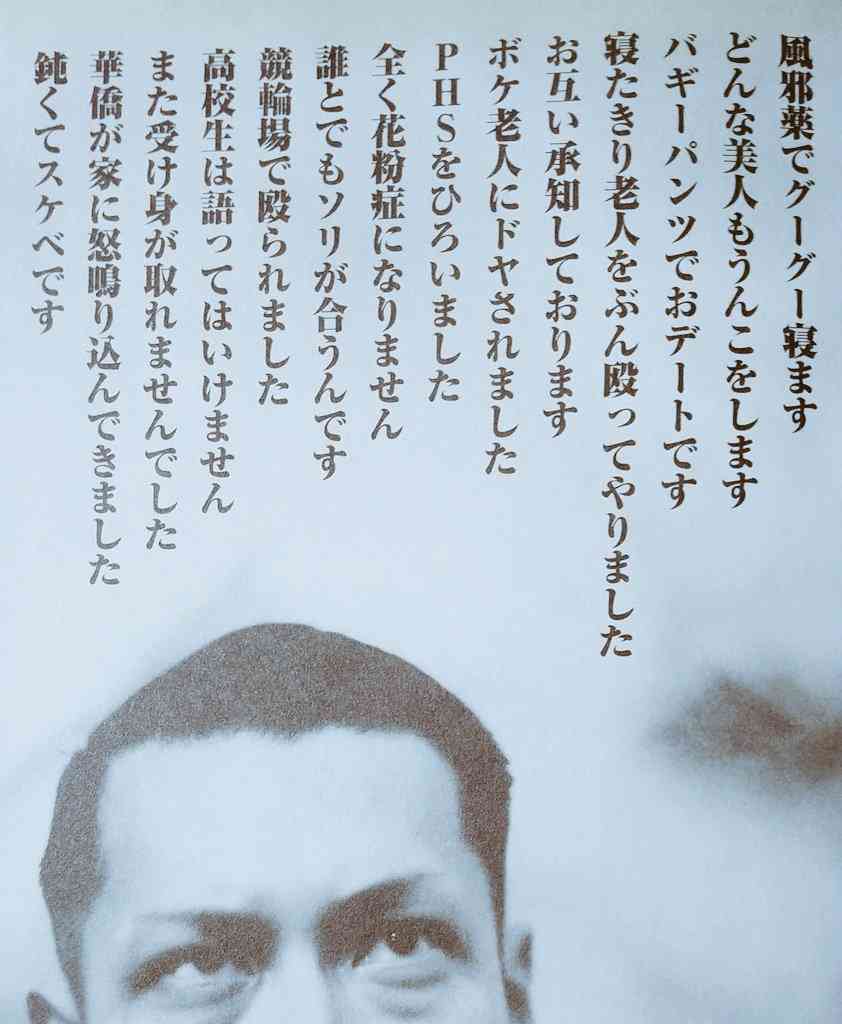 風邪薬でグーグー寝ます
どんな美人もうんこをします
バギーパンツでおデートです
寝たきり老人をぶん殴ってやりました
お互い承知しております
ボケ老人にドヤされました
PHSをひろいました
全く花粉症になりません
誰とでもソリが合うんです
競輪場で殴られました
高校生は語ってはいけません
また受け身が取れませんでした
華僑が家に怒鳴り込んできました
鈍くてスケベです